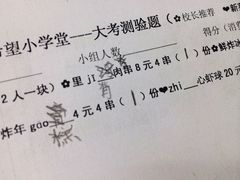 希望小学堂----大考测验题（✿校长推荐 ❤新
小组人数 得分（消
2人一块）✿里jI 鸡肉串8元4串（|）份✿鲜炸
炸年goo 糕4元4串（|）份❤zhi__心虾球20元